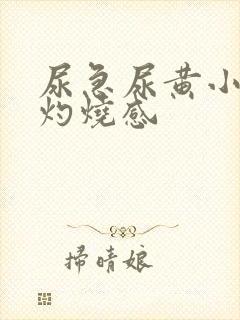 尿急尿黄小
灼烧感
掃晴娘